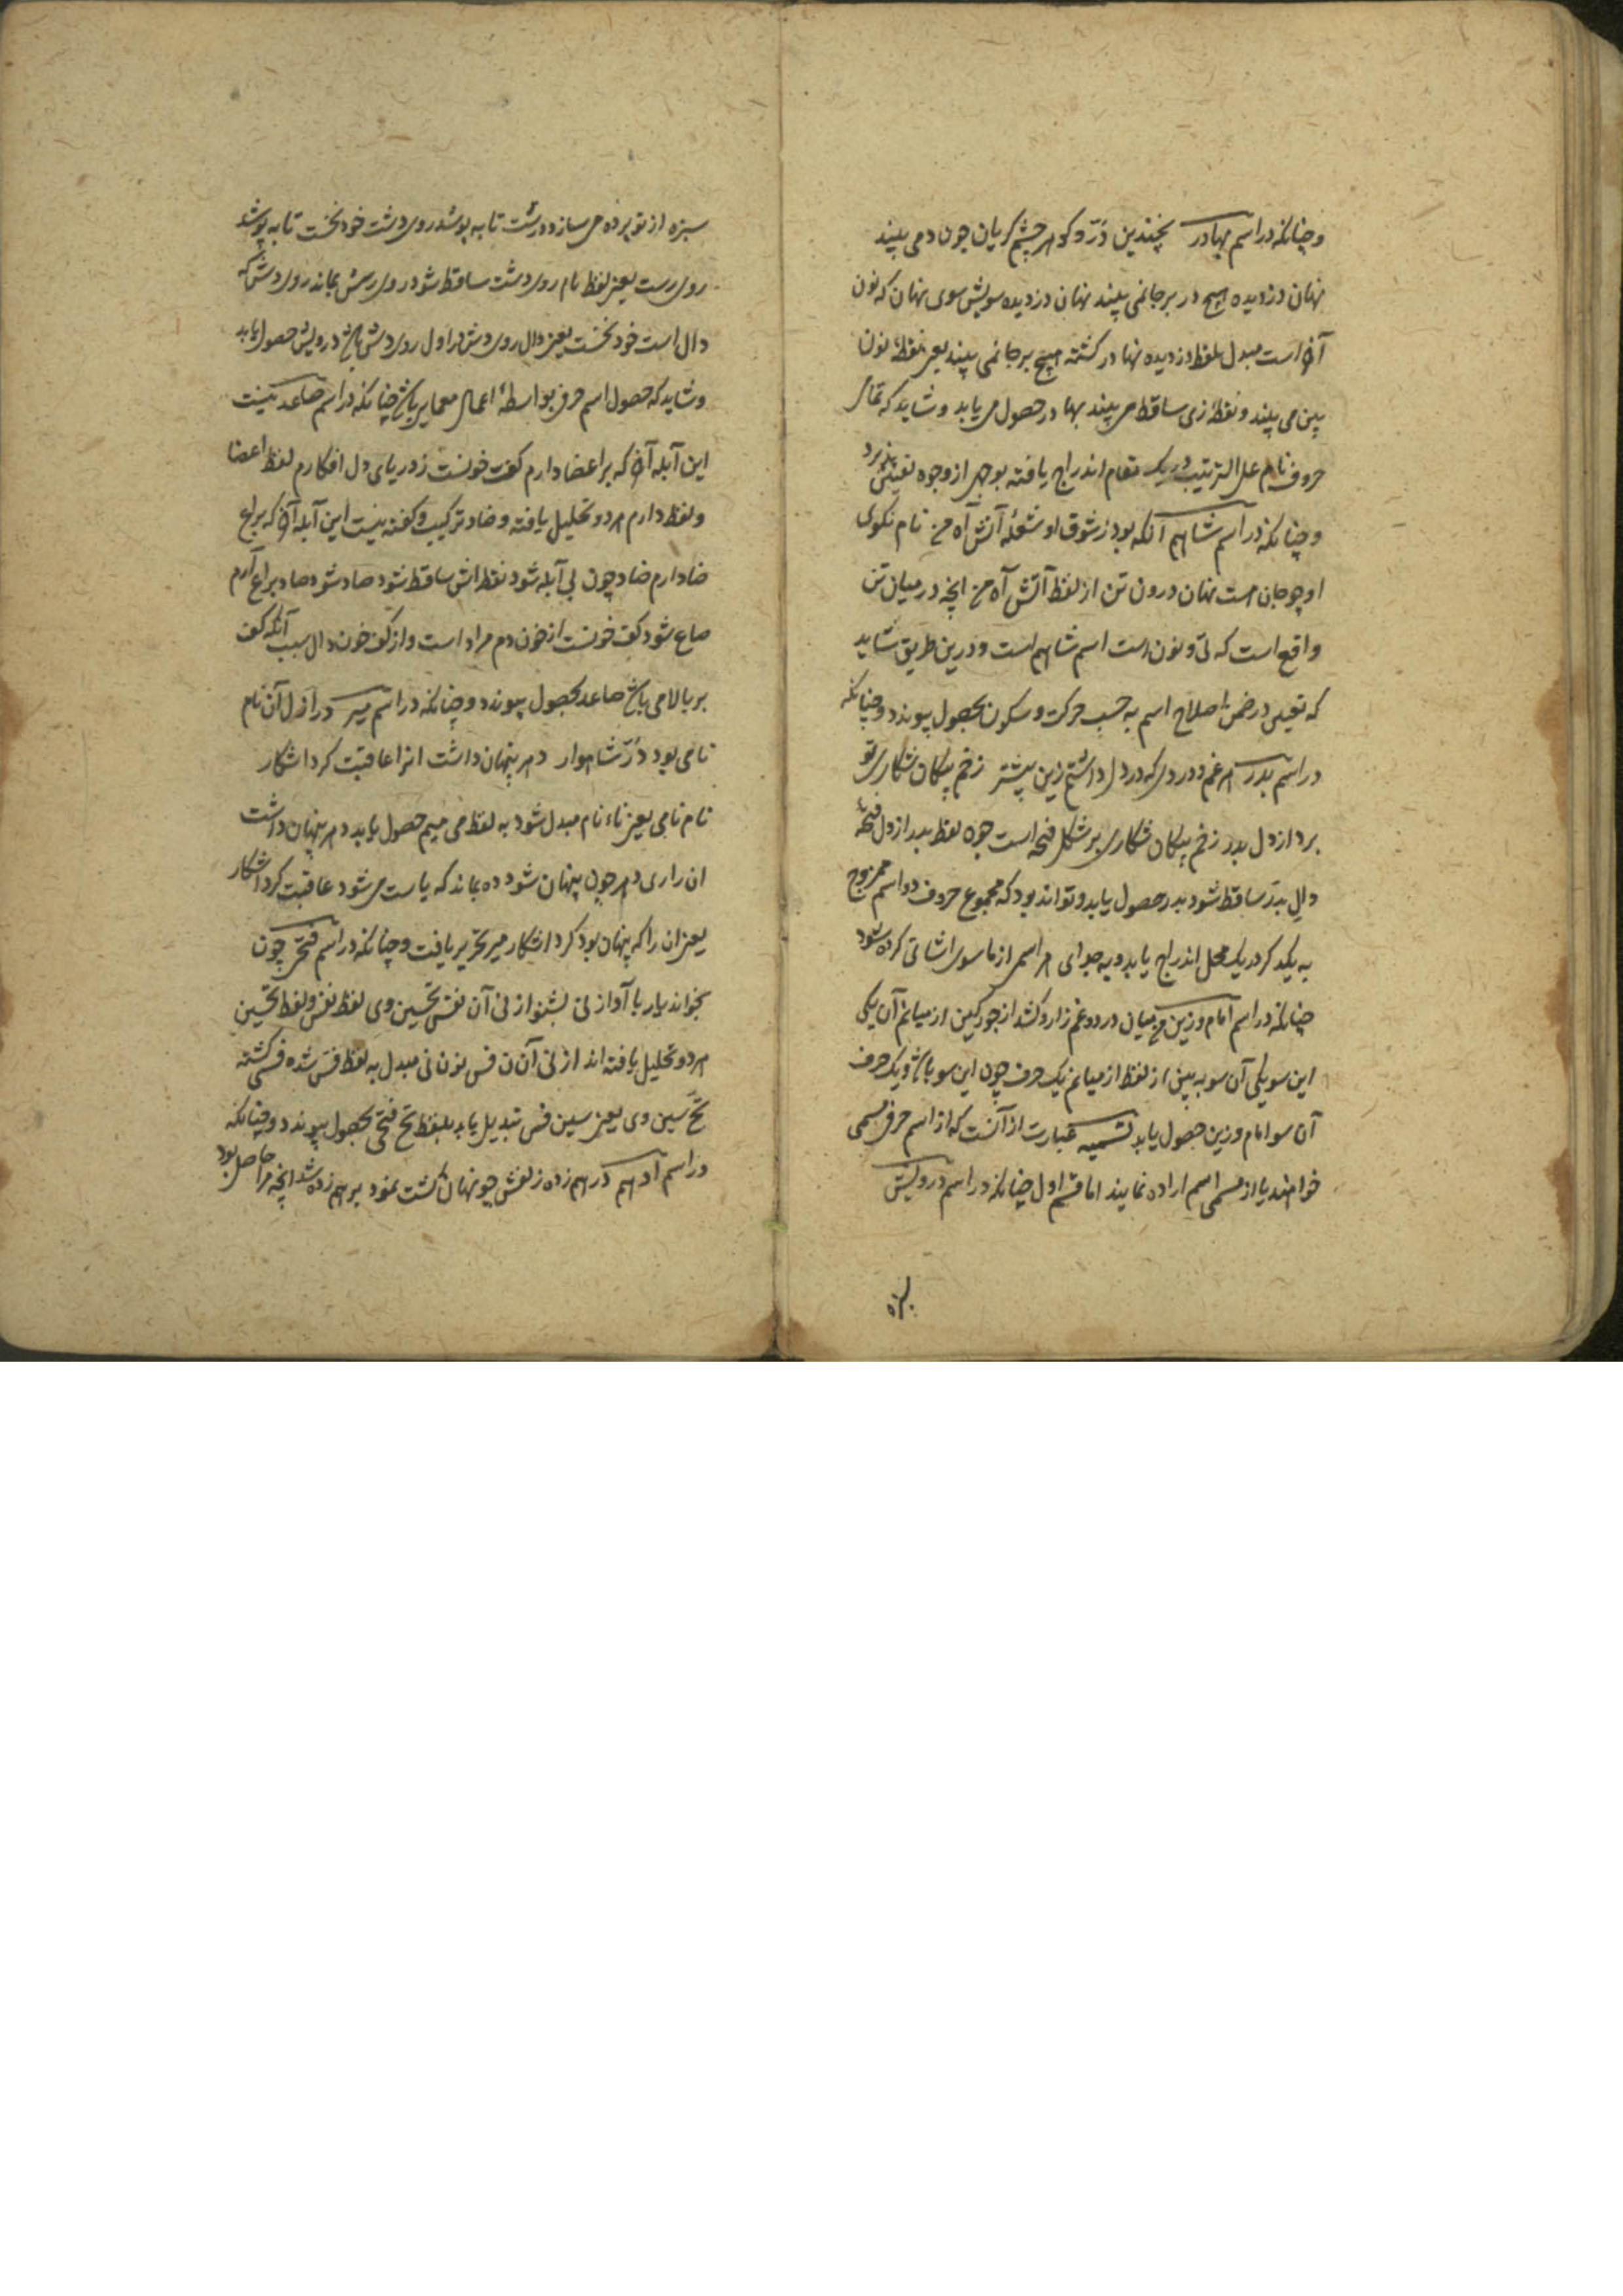 و چنانکه در اسم بهادر بچندین در و کوهر چشم کریان چون دمی بیند
نهان دزدیده هیچ در بر جانمی بیند نهان دزدیده سویش سوی نهان که نون
آن است مبدل بلفظ دزدیده نهادر کشته هیچ بر جانمی بیند یعنی نقطه نون
بین می بیند و نقطه زی ساقط می بیند بهادر حصول می یابد و شاید که تمام
حروف نام علی الترتیب در یک مقام اندراج یافته بوجهی از وجوه تعیین پذیرد
و چنانکه در اسم شاهم آنکه بود ز شوق او شعله آتش آه من نام نکوی
او چو جان هست نهان درون تن از لفظ آتش آه من انچه در میان تن
واقع است که تی و نون است اسم شاهم است و درین طریق شاید
که تعیین در ضمن اصلاح اسم به حسب حرکت و سکون بحصول پیوندد و چنانکه
در اسم بدر هر غم و دردی که در دل داشتم زین پیشتر زخم پیکان شکاری تو
برد از دل بدر زخم پیکان شکاری بر شکل فتحه است چون لفظ بدر از دل فتحه
دال بدر ساقط شود بدر حصول یابد و تواند بود که مجموع حروف دو اسم ممزوج
به یکدکر در یک محل اندراج یابد و به جدای هر اسمی از ماسوی اشاتی کرده شود
چنانکه در اسم امام و زین من میان درد و غم زار و کشد از جور کین از میانم آن یکی
این سو یکی آن سو به بین از لفظ از میانم یک حرف چون این سو باشد و یک حرف
آن سو امام و زین حصول یابد تسمیه عبارت از آنست که از اسم حرفی مسمی
خواهند یا از مسمی اسم اراده نمایند اما قسم اول چنانکه در اسم درویش
سبزه از نو پرده می سازد درشت تا به پوشد روی دشت خود نخست تا به پوشد
روی رست یعنی لفظ نام روی دشت ساقط شود روی رسش بماند روی دشش که
دال است خود نخست یعنی دال روی دش در اول روی دش باشد درویش حصول یابد
و شاید که حصول اسم حرف بواسطه اعمال معمایی باشد چنانکه در اسم صاعد نیست
این آبله آن که بر اعضا دارم کفت خونست ز دریای دل افکارم لفظ اعضا
و لفظ دارم هر دو تحلیل یافته و ضاد ترکیب و کفته نیست این آبله آن که بر اع
ضادارم ضاد چون بی آبله شود نقطه اش ساقط شود صاد شود صاد بر اع آرم
صاع شود کف خونست از خون دم مراد است و از کف خون دال سبب آنکه کف
بر بالا می باشد صاعد بحصول پیوندد و چنانکه در اسم میر در ازل آن نام
نامی بود در شاهوار دهر پنهان داشت انرا عاقبت کرد اشکار
نام نامی یعنی ناء نام مبدل شود به لفظ می میم حصول یابد دهر پنهان داشت
ان رای دهر چون پنهان شود ده بماند که یاست می شود عاقبت کرد اشکار
یعنی ان را که پنهان بود کرد اشکار میر تحریر یافت و چنانکه در اسم فتحی چون
بخواند یار با آواز نی بشنو از نی آن نفس تحسین وی لفظ نفس و لفظ تحسین
هر دو تحلیل یافته اند از نی آن ن فس نون نی مبدل به لفظ فس شده فسی کشته
تح سین وی یعنی سین فسی تبدیل یابد بلفظ تح فتحی بحصول پیوندد و چنانکه
در اسم ادهم درهم زده زلفش چو نهان کشت نمود برهم زده شد انچه مرا حاصل بود